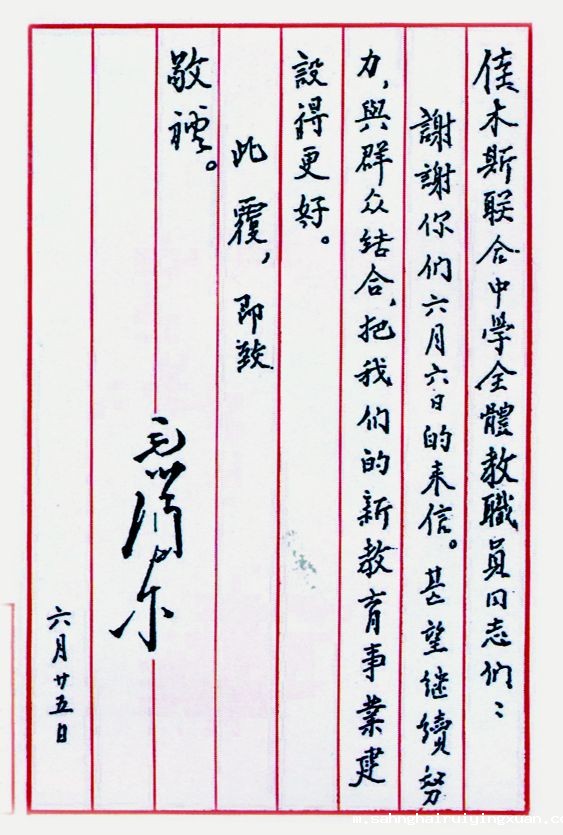 佳木斯联合中學全體教職員同志们：
謝謝你们六月六日的来信。甚望继續努
力，與群众结合，把我们的新教育事業建
設得更好。
此覆，即致
敬禮。
毛泽东
六月廿五日
m.sahnghairuiyingxuan.co